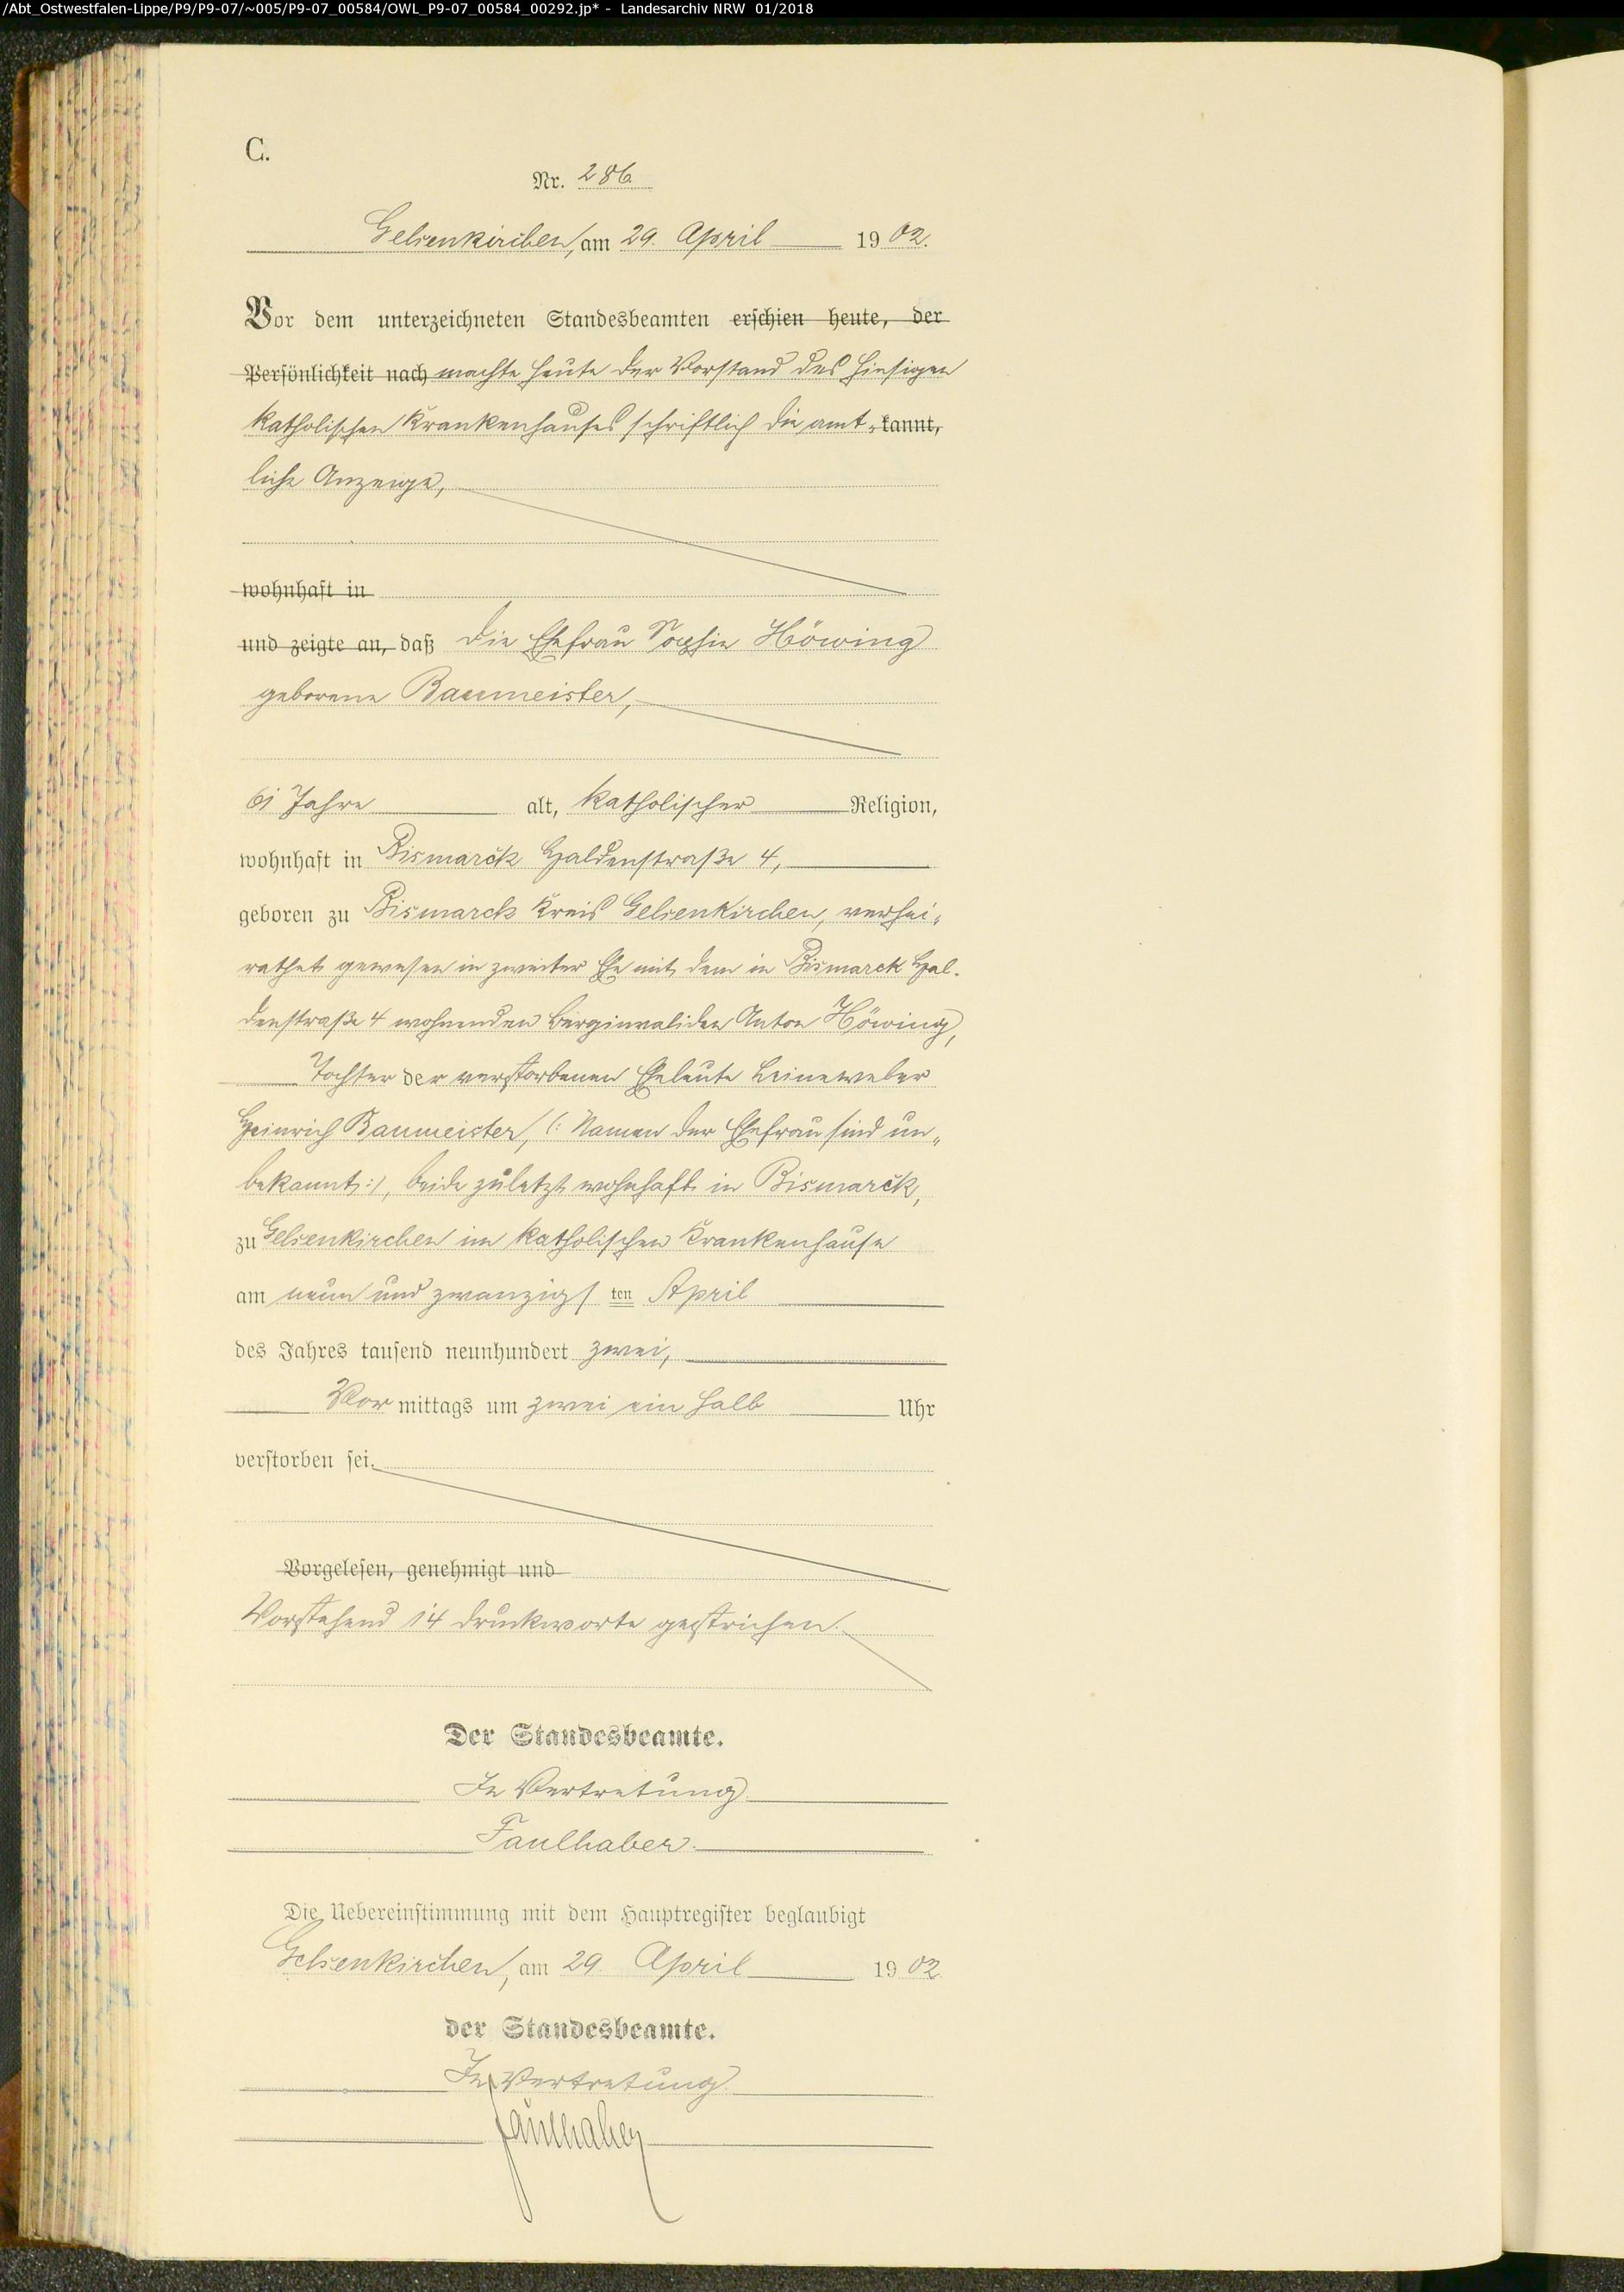 /Abt_Ostwestfalen-Lippe/P9/P9-07/~005/P9-07_00584/OWL_P9-07_00584_00292.jp* - Landesarchiv NRW 01/2018
C.
Nr. 286
Gelsenkirchen, am 29. April 1902.
Vor dem unterzeichneten Standesbeamten erschien heute, der
Persönlichkeit nach machte heute der Vorstand des hiesigen
katholischen Krankenhauses schriftlich die amt- kannt,
liche Anzeige,
wohnhaft in
und zeigte an, daß die Ehefrau Sophie Höwing
geborene Baumeister,
61 Jahre alt, katholischer Religion,
wohnhaft in Bismarck Haldenstraße 4,
geboren zu Bismarck Kreis Gelsenkirchen, verhei-
rathet gewesen in zweiter Ehe mit dem in Bismarck Hal-
denstraße 4 wohnenden Berginvaliden Anton Höwing,
Tochter der verstorbenen Eheleute Leineweber
Heinrich Baumeister, (: Namen der Ehefrau sind un-
bekannt :), beide zuletzt wohnhaft in Bismarck,
zu Gelsenkirchen im katholischen Krankenhause
am neun und zwanzigsten April
des Jahres tausend neunhundert zwei,
Vor mittags um zwei ein halb Uhr
verstorben sei.
Vorgelesen, genehmigt und
Vorstehend 14 Druckworte gestrichen.
Der Standesbeamte.
In Vertretung
Faulhaber.
Die Uebereinstimmung mit dem Hauptregister beglaubigt
Gelsenkirchen, am 29. April 1902
der Standesbeamte.
In Vertretung
Faulhaber